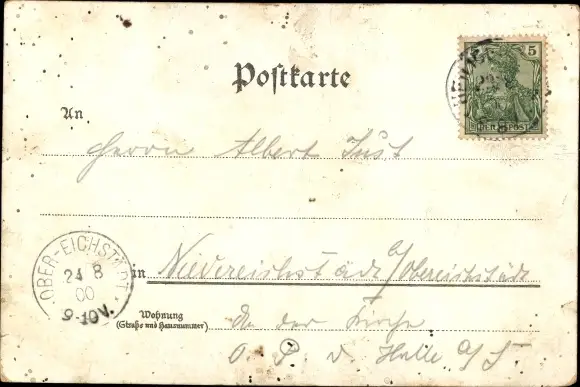 5
Postkarte
An
Herrn Albert Just
OBER-EICHSTÄDT
24 8
00
9-10V.
in Niedereichstädt c/Obereichstädt
Wohnung
(Straße und Hausnummer)
An der Kirche
O. P. D. Halle a/S